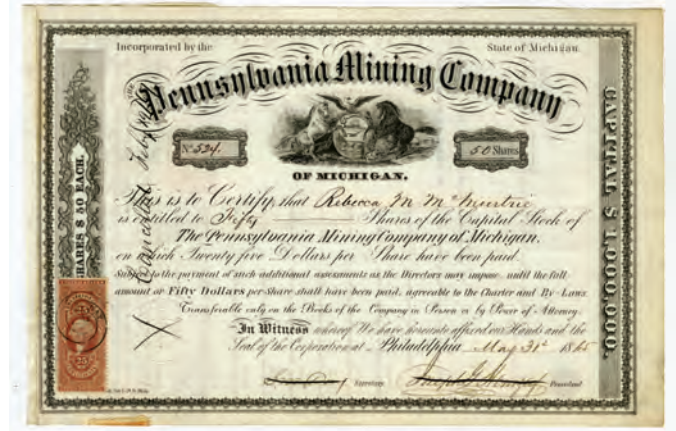 Incorporated by the State of Michigan
THE
Pennsylvania Mining Company
No. 524. 50 Shares
OF MICHIGAN.
This is to Certify, that Rebecca M McMurtrie
is entitled to Fifty Shares of the Capital Stock of
The Pennsylvania Mining Company of Michigan,
on which Twenty five Dollars per Share have been paid.
Subject to the payment of such additional assessments as the Directors may impose until the full
amount of Fifty Dollars per Share shall have been paid, agreeable to the Charter and By-Laws.
Transferable only on the Books of the Company in Person or by Power of Attorney.
In Witness whereof We have hereunto affixed our Hands and the
Seal of the Corporation at Philadelphia May 31st 1865
Secretary President
SHARES $ 50 EACH.
Cancelled Feby
CAPITAL $ 1,000,000.
25 25